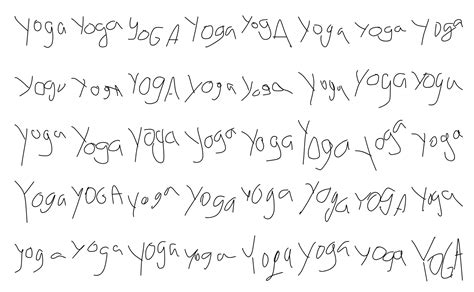 Yoga Yoga YOGA Yoga YogA Yoga Yoga Yoga
Yoga Yoga YOGA Yoga Yoga Yoga Yoga Yoga
Yoga Yoga Yoga Yoga Yoga Yoga Yoga Yoga
Yoga YOGA Yoga Yoga Yoga Yoga YOGA Yoga
yoga Yoga Yoga yoga Yoga Yoga Yoga YOGA